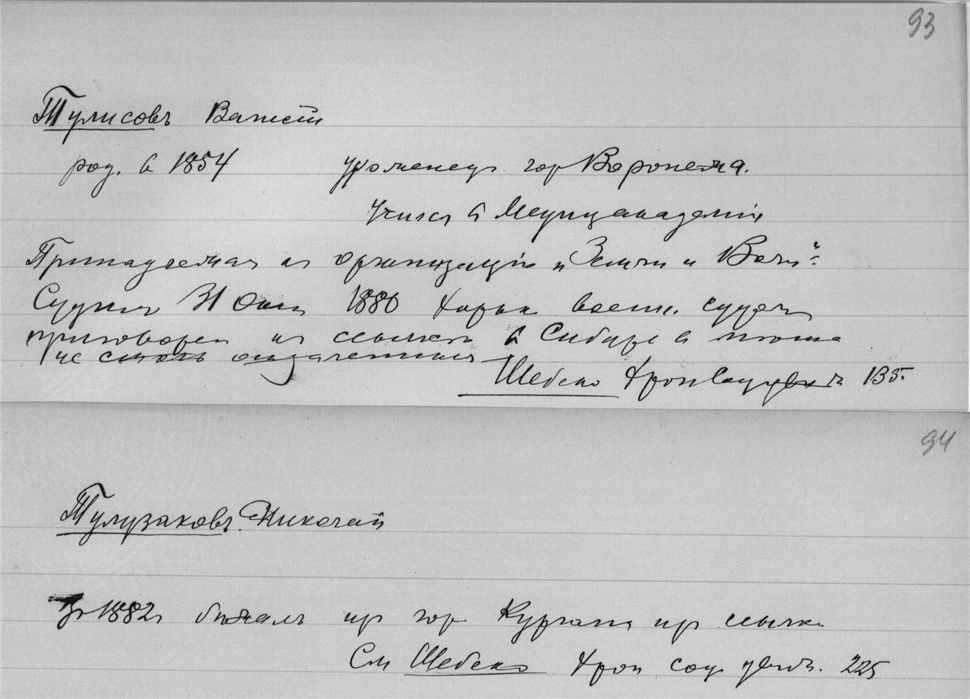 93
Тулисовъ Василій
род. в 1854 уроженецъ гор Воронежа.
Учился в Медиц академіи
Принадлежал къ организаціи „Земли и Воли":
Судился 1880 Харьк воен. судомъ
приговорен къ ссылкѣ в Сибирь в
не столь отдаленныя
Шебеко Хрон Соц 135.
94
Тулузаковъ Николай
1882г бѣжалъ изъ гор Кургана изъ ссылки
См Шебеко Хрон соц движ. 225